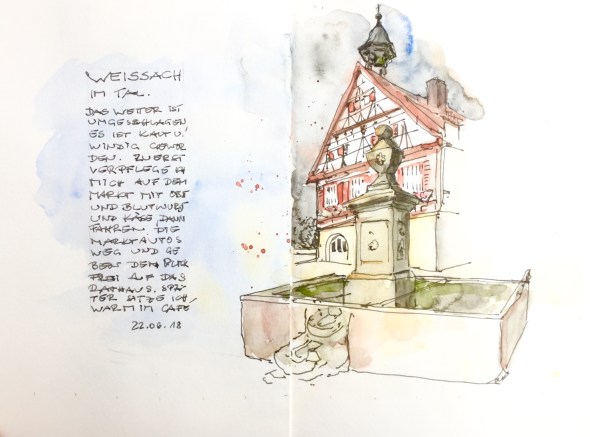 WEISSACH
IM TAL.
DAS WETTER IST
UMGESCHLAGEN
ES IST KALT U.
WINDIG GEWOR
DEN. ZUERST
VERPFLEGE ICH
MICH AUF DEM
MARKT MIT OBST
UND BLUTWURST
UND KÄSE, DANN
FAHREN DIE
MARKTAUTOS
WEG UND GE
BEN DEN BLICK
FREI AUF DAS
RATHAUS. SPÄ
TER SITZE ICH
WARM IM CAFE
22.06.18